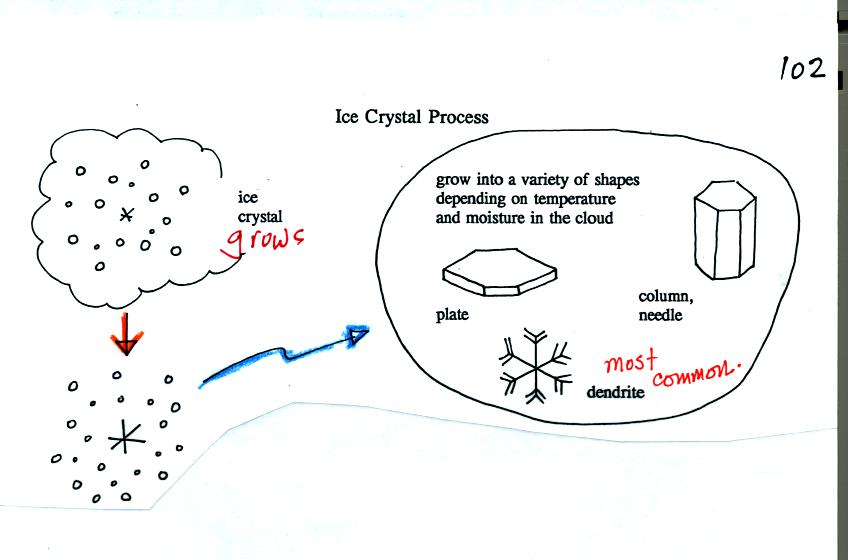 102
Ice Crystal Process
ice
crystal
grows
grow into a variety of shapes
depending on temperature
and moisture in the cloud
plate
column,
needle
dendrite
most
common.